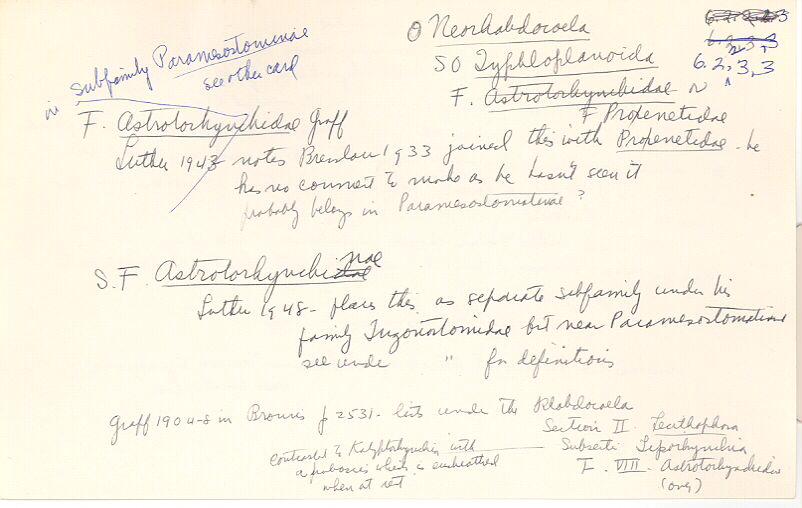 O Neorhabdocoela
SO Typhloplanoida
6.2.3.3
F. Astrotorhynchidae
F Proxenetidae
in Subfamily Paramesostominae
see other card
F. Astrotorhynchidae Graff
Luther 1943 notes Bresslau 1933 joined this with Proxenetidae - he
has no comment to make as he hasn't seen it
probably belongs in Paramesostominae ?
S.F. Astrotorhynchinae
Luther 1948 - places this as separate subfamily under his
family Trigonostomidae but near Paramesostominae
see under " for definitions
Graff 1904-8 in Bronn's p 2531 - lists under the Rhabdocoela
Section II Lecithophora
Subsecti Liporhynchia
F. VIII Astrotorhynchidae
(over)
contrasted to Kalyptorhynchia with
a proboscis which is ensheathed
when at rest